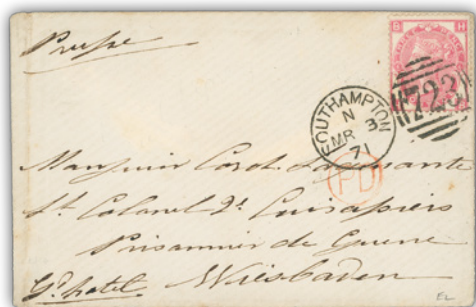 Prusse
B H
723
SOUTHAMPTON
N
MR 3
71
PD
Monsieur Carol.
Lt. Colonel 2d Cuirassiers
Prisonnier de Guerre
Gd. hotel Wiesbaden